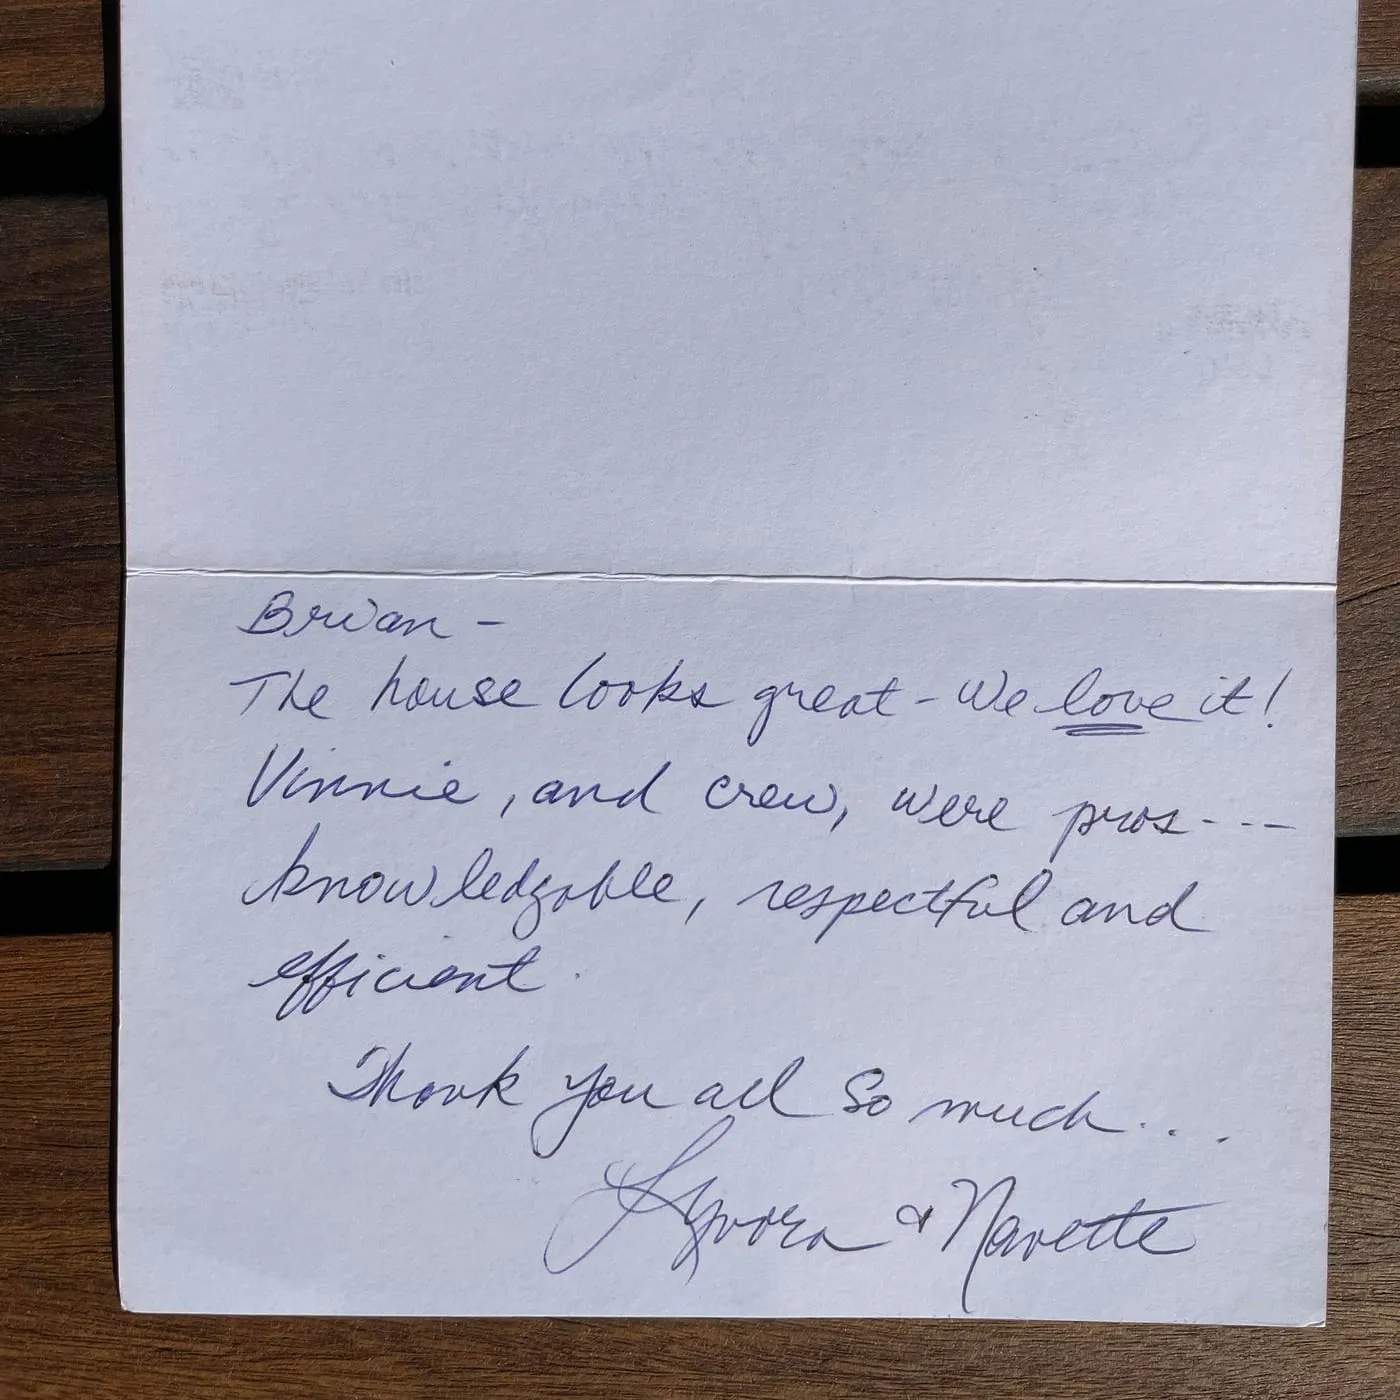 Brian -
The house looks great - We love it!
Vinnie, and crew, were pros - - -
knowledgable, respectful and
efficient.
Thank you all so much...
& Nanette